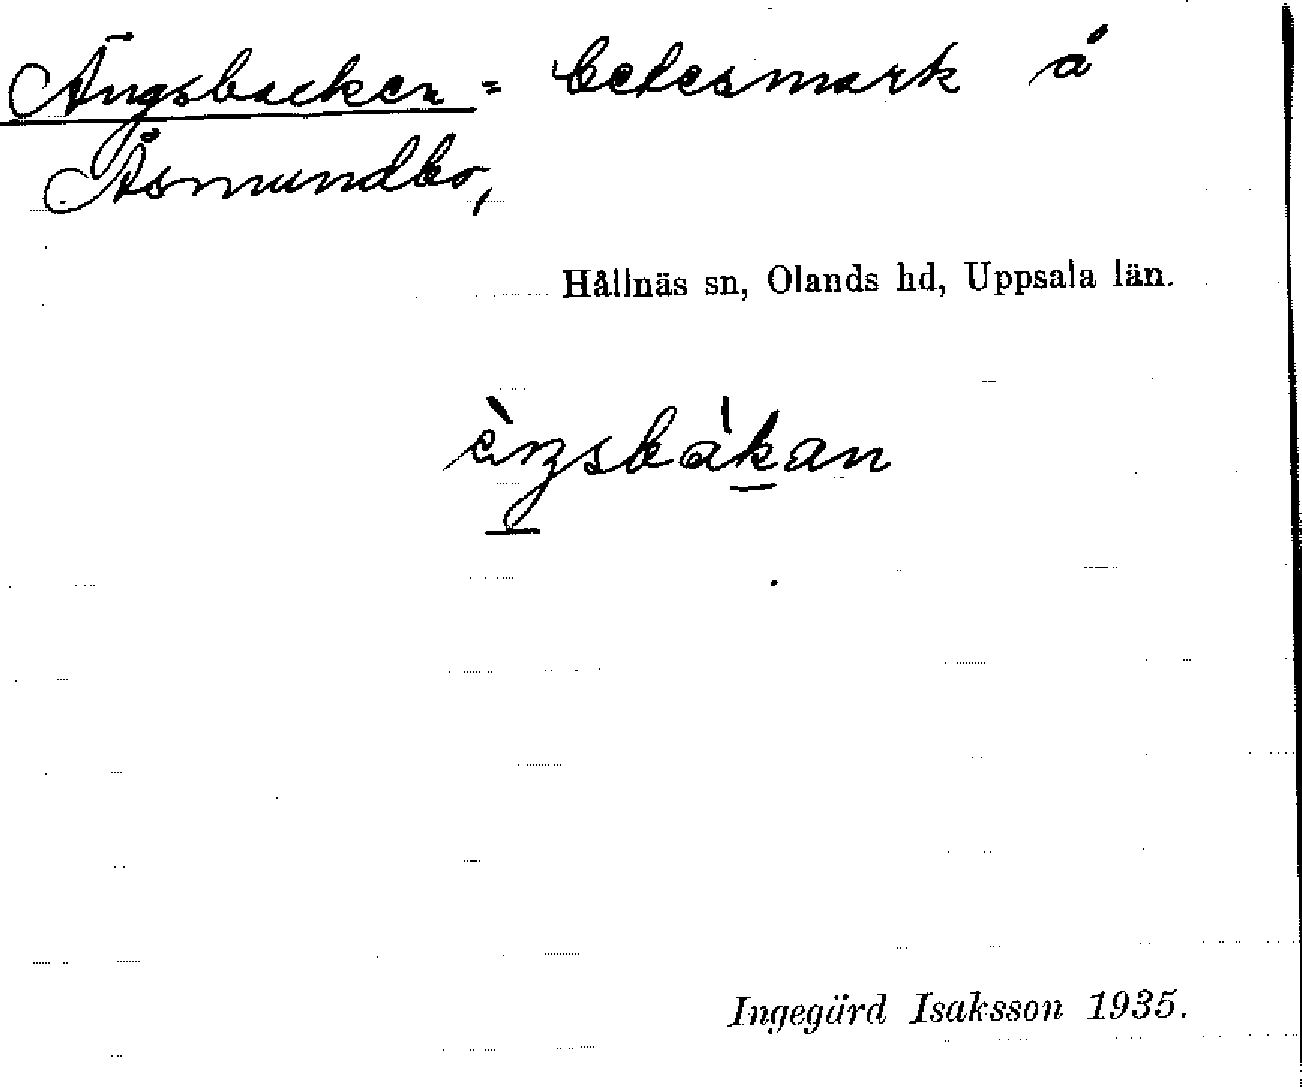 Ängsbacken = betesmark å
Åsmundbo,
Hållnäs sn, Olands hd, Uppsala län.
Ingegärd Isaksson 1935.